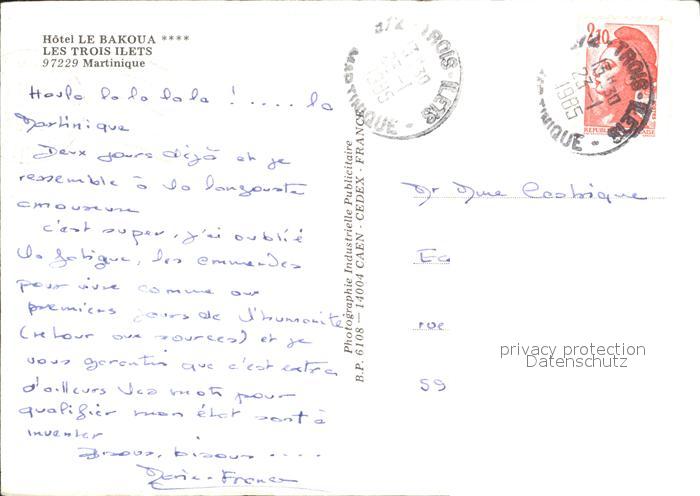 Hôtel LE BAKOUA ****
LES TROIS ILETS
97229 Martinique
Houlo la la la la ! .... la
Martinique
Deux jours déjà et je
ressemble à la langouste
amoureuse
c'est super, j'ai oublié
la fatigue, les emmerdes
pour vivre comme aux
premiers jours de l'humanité
(retour aux sources) et je
vous garantis que c'est extra
d'ailleurs les mots pour
qualifier mon état sont à
inventer
Bisous, bisous ....
Marie-France
Photographie Industrielle Publicitaire
B.P. 6108 — 14004 CAEN - CEDEX - FRANCE
972-TROIS-ILETS
13H30
23-1
1985
MARTINIQUE
2,10
972-TROIS-ILETS
13H30
23-1
1985
MARTINIQUE
Mr Mme
rue
59
privacy protection
Datenschutz